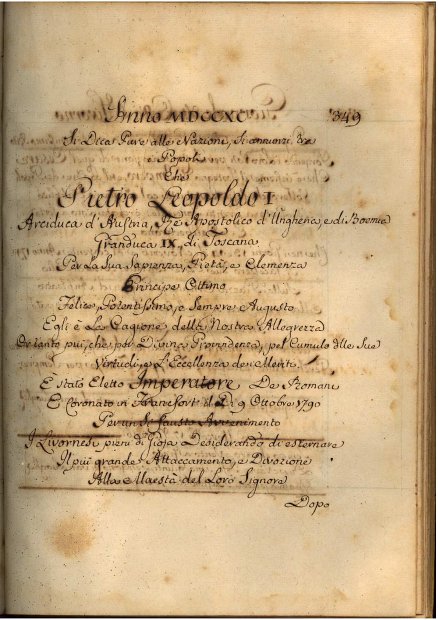 Anno MDCCXC 349
Si Dica Pace alle Nazioni, Si annunzi
e Popoli
Che
Pietro Leopoldo I
Arciduca d'Austria, Re Apostolico d'Ungheria, e di Boemia
Granduca IX, di Toscana
Per La Sua Sapienza, Pietà, e Clemenza
Principe Ottimo
Felice, Potentissimo, e Sempre Augusto
Egli è La Cagione della Nostra Allegrezza
tanto più, che per Divina Provvidenza, pel Cumulo delle Sue
Virtudi, e L'Eccellenza dei Meriti
È stato Eletto Imperatore De Romani
E Coronato in Francfort il Dì 9 Ottobre 1790
Per un Sì fausto Avvenimento
I Livornesi pieni di Gioja Desiderando di esternare
Il più grande Attaccamento, e Divozione
Alla Maestà del Loro Signore
Dopo